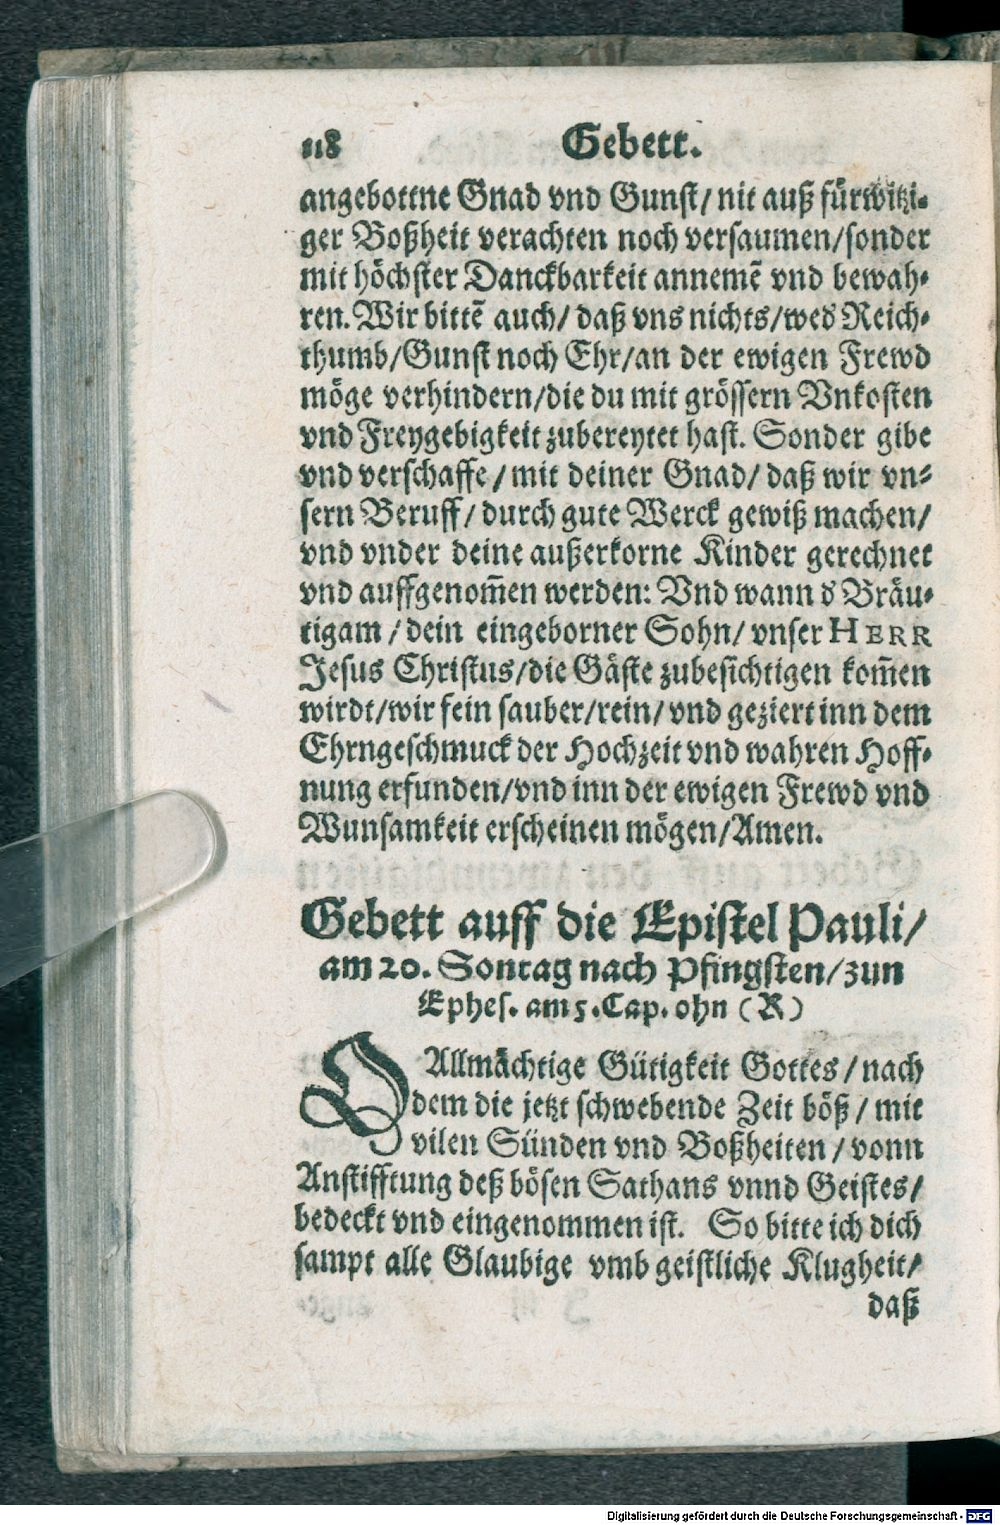 118 Gebett.
angebottne Gnad vnd Gunst/ nit auß fürwitzi-
ger Boßheit verachten noch versaumen/sonder
mit höchster Danckbarkeit annemẽ vnd bewah-
ren. Wir bittẽ auch/ daß vns nichts/wed' Reich-
thumb/Gunst noch Ehr/an der ewigen Frewd
möge verhindern/die du mit grössern Vnkosten
vnd Freygebigkeit zubereytet hast. Sonder gibe
vnd verschaffe/ mit deiner Gnad/ daß wir vn-
sern Beruff/ durch gute Werck gewiß machen/
vnd vnder deine außerkorne Kinder gerechnet
vnd auffgenom̃en werden: Vnd wann d' Bräu-
tigam/ dein eingeborner Sohn/ vnser HERR
Jesus Christus/die Gäste zubesichtigen kom̃en
wirdt/wir fein sauber/rein/ vnd geziert inn dem
Ehrngeschmuck der Hochzeit vnd wahren Hoff-
nung erfunden/vnd inn der ewigen Frewd vnd
Wunsamkeit erscheinen mögen/Amen.
Gebett auff die Epistel Pauli/
am 20. Sontag nach Pfingsten/zun
Ephes. am 5. Cap. ohn (R)
O Allmächtige Gütigkeit Gottes/ nach
dem die jetzt schwebende Zeit böß/ mit
vilen Sünden vnd Boßheiten/ vonn
Anstifftung deß bösen Sathans vnnd Geistes/
bedeckt vnd eingenommen ist. So bitte ich dich
sampt alle Glaubige vmb geistliche Klugheit/
daß
Digitalisierung gefördert durch die Deutsche Forschungsgemeinschaft - DFG